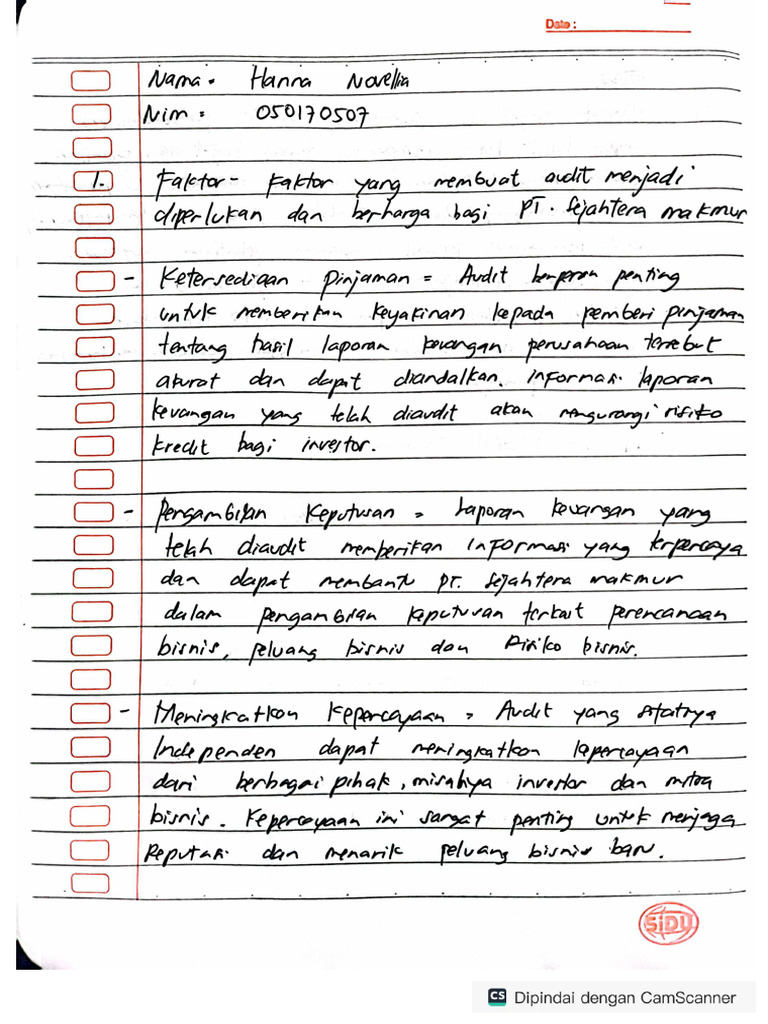 Date:
Nama. Hanna Novellia
Nim : 050170507
1. Faktor-faktor yang membuat audit menjadi
diperlukan dan berharga bagi PT. Sejahtera makmur
- Ketersediaan Pinjaman = Audit berperan penting
untuk memberikan keyakinan kepada pemberi pinjaman
tentang hasil laporan keuangan perusahaan tersebut
akurat dan dapat diandalkan. Informasi laporan
keuangan yang telah diaudit akan mengurangi risiko
kredit bagi investor.
- Pengambilan Keputusan = Laporan keuangan yang
telah diaudit memberikan informasi yang terpercaya
dan dapat membantu PT. Sejahtera makmur
dalam pengambilan keputusan terkait perencanaan
bisnis, peluang bisnis dan Risiko bisnis.
- Meningkatkan Kepercayaan = Audit yang sifatnya
Independen dapat meningkatkan kepercayaan
dari berbagai pihak, misalnya investor dan mitra
bisnis. Kepercayaan ini sangat penting untuk menjaga
Reputasi dan menarik peluang bisnis baru.
SIDU
CS Dipindai dengan CamScanner